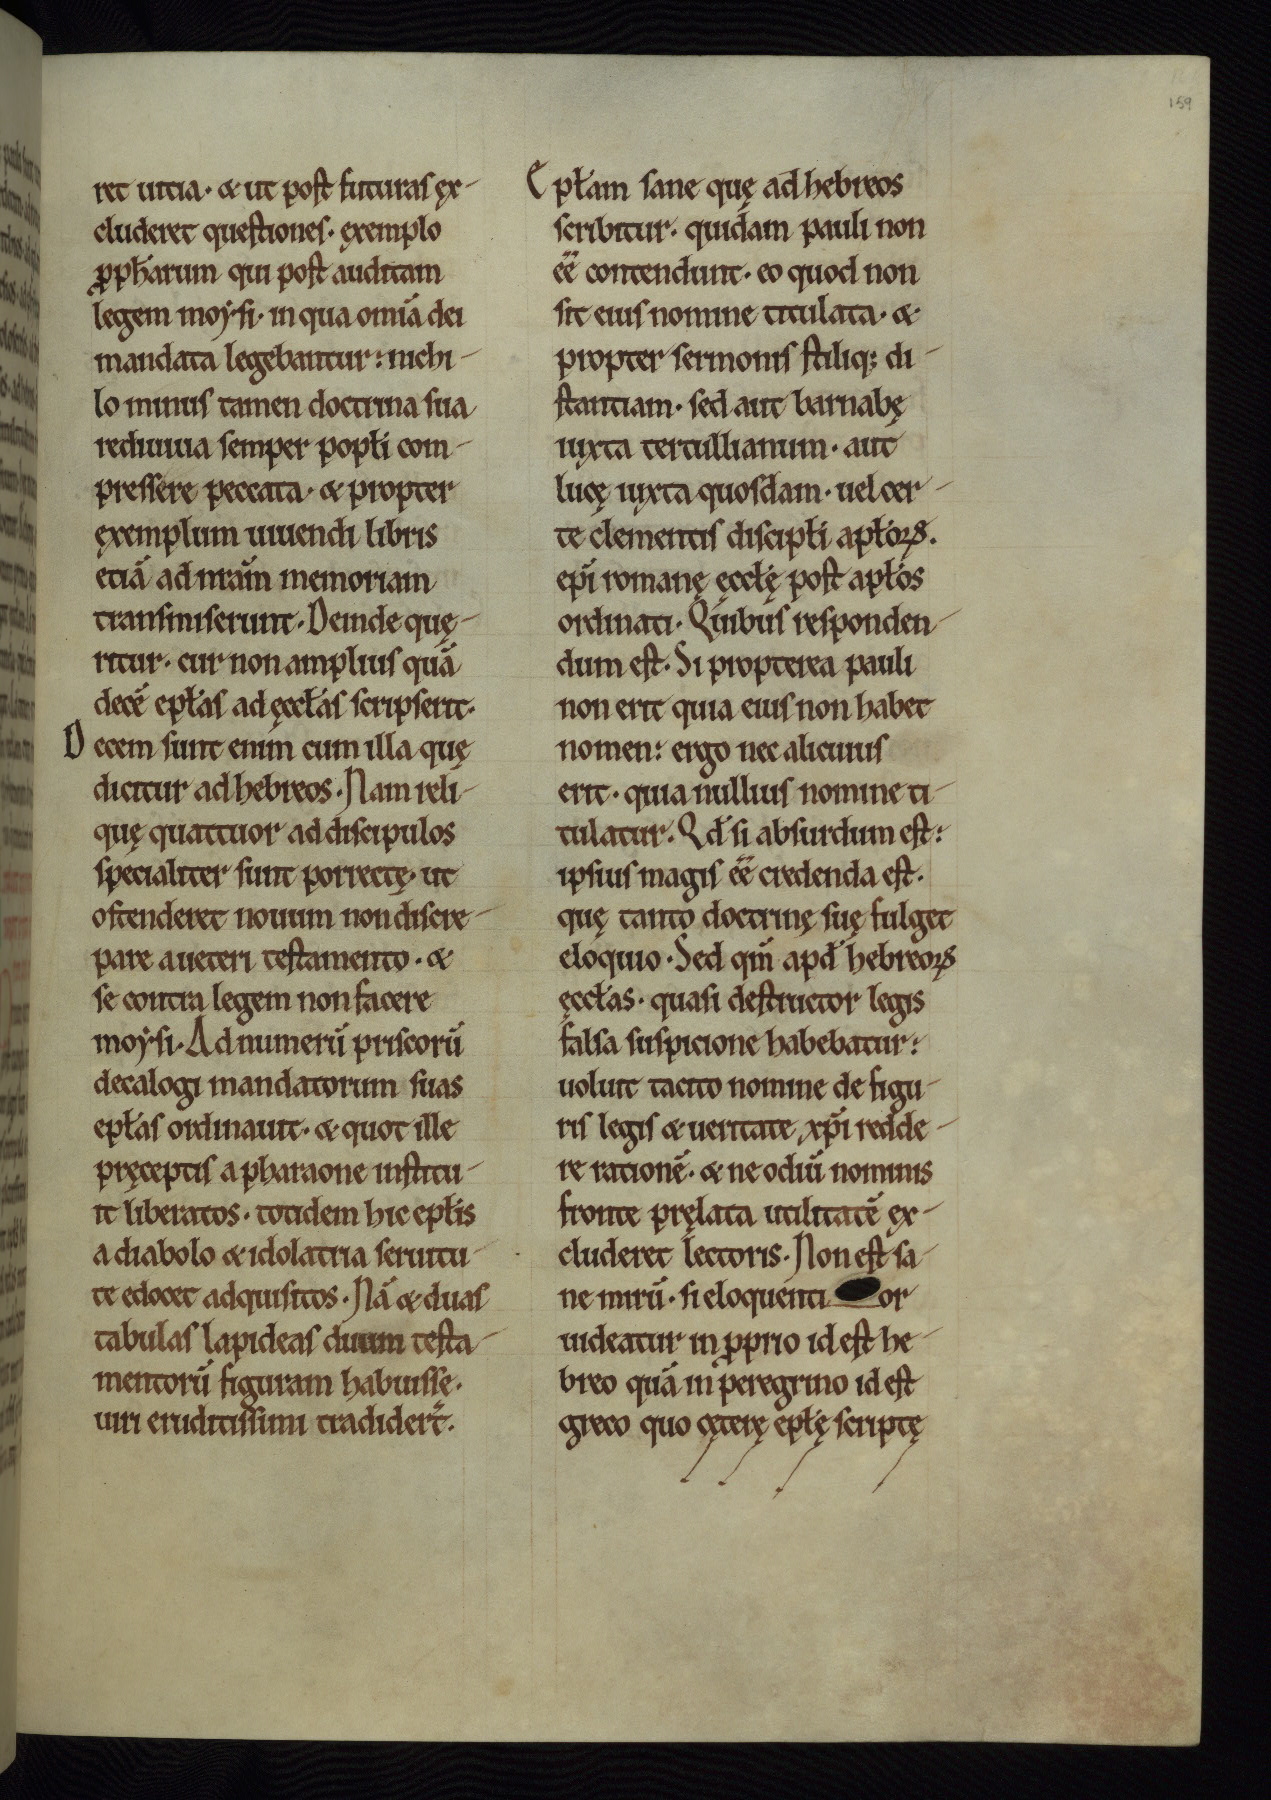 159
ret uitia · & ut post futuras ęx-
cluderet questiones · ęxemplo
ꝓph̄arum qui post auditam
legem moẏsi · in qua om̄ia dei
mandata legebantur : nichi-
lo minus tamen doctrina sua
rediuiua semper popłi com-
pressere peccata · & propter
ęxemplum uiuendi libris
etiā ad nr̄am memoriam
transmiserunt · Deinde quę-
ritur · cur non amplius quā
decē epłas ad ęccłas scripserit ·
Decem sunt enim cum illa quę
dicitur ad hebreos · Nam reli-
quę quattuor ad discipulos
specialiter sunt porrectę · ut
ostenderet nouum non discre-
pare a ueteri testamento · &
se contra legem non facere
moẏsi · Ad numerū priscorū
decalogi mandatorum suas
epłas ordinauit · & quot ille
pręceptis a pharaone institu-
it liberatos · totidem hic epłis
a diabolo & idolatria seruitu-
te edocet adquisitos · Nā & duas
tabulas lapideas duum testa-
mentorū figuram habuisse ·
uiri eruditissimi tradider̄t .
Epłam sane quę ad hebreos
scribitur · quidam pauli non
ee̅ contendunt · eo quod non
sit eius nomine titulata · &
propter sermonis stiliq; di-
stantiam · sed aut barnabę
iuxta tertullianum · aut
lucę iuxta quosdam · uel cer-
te clementis discipłi apłoꝝ .
epī romanę ęccłę post apłos
ordinati · Quibus responden-
dum est · Si propterea pauli
non erit quia eius non habet
nomen : ergo nec alicuius
erit · quia nullius nomine ti-
tulatur · Qd̄ si absurdum est :
ipsius magis ee̅ credenda est .
quę tanto doctrinę suę fulget
eloquio · Sed qm̄ apd̄ hebreoꝝ
ęccłas · quasi destructor legis
falsa suspicione habebatur :
uoluit tacito nomine de figu-
ris legis & ueritate xp̄i redde-
re rationē · & ne odiū nominis
fronte pręlata utilitatē ex-
cluderet lectoris · Non est sa-
ne mirū · si eloquenti or
uideatur in ꝓprio id est he-
breo quā in peregrino id est
greco quo cęterę epłę scriptę